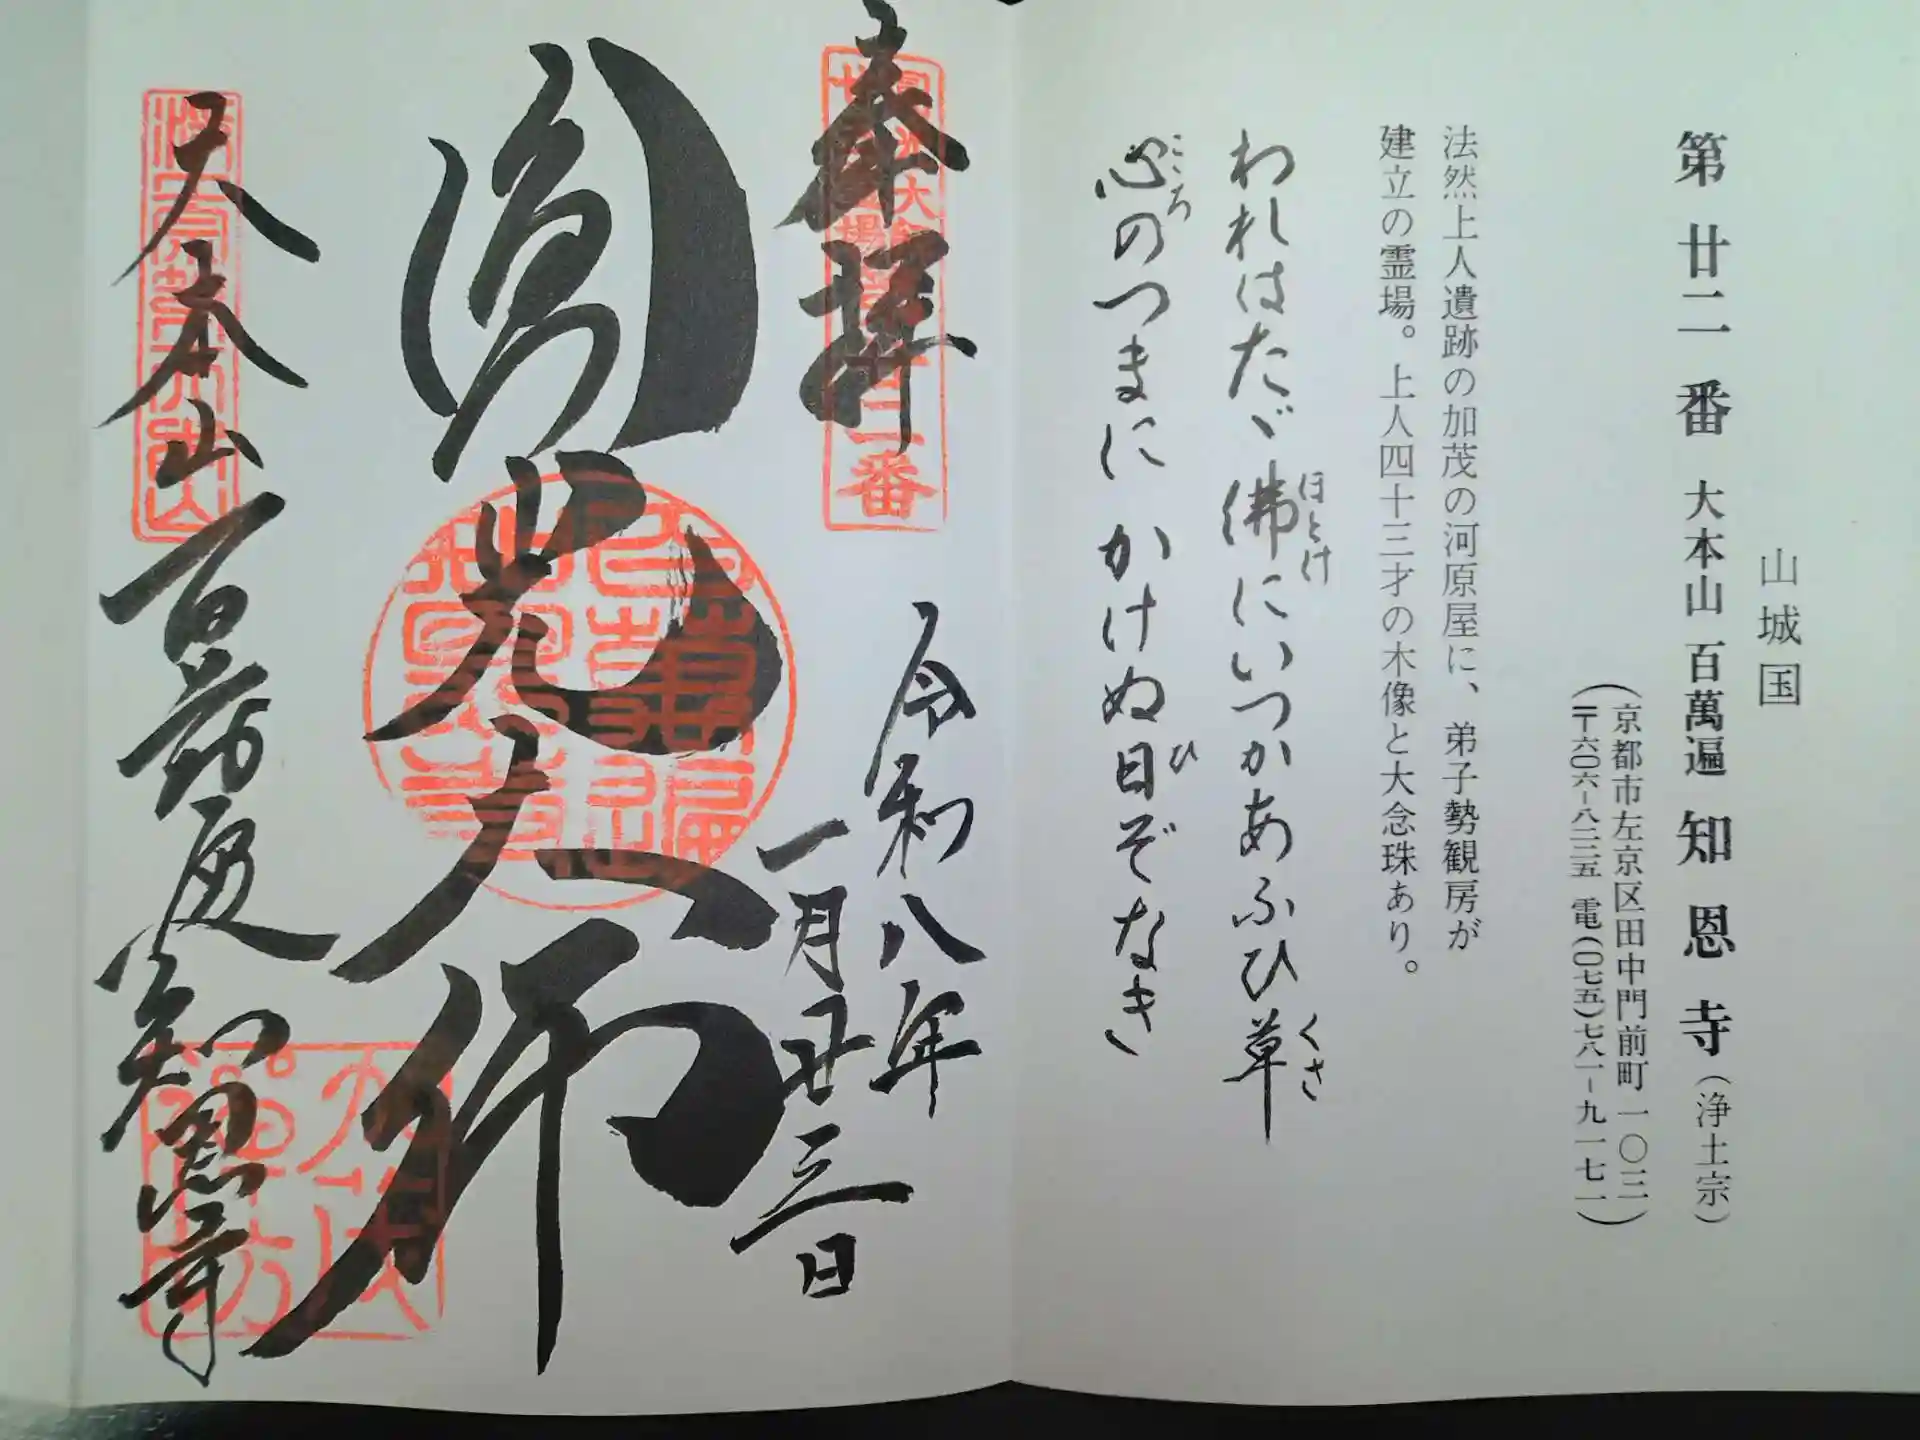 山城国
第廿二番 大本山 百萬遍 知恩寺(浄土宗)
(京都市左京区田中門前町一〇三)
(〒六〇六-八二二五 電(〇七五)七八一-九一七一)
法然上人遺跡の加茂の河原屋に、弟子勢観房が
建立の霊場。上人四十三才の木像と大念珠あり。
われはたゞ佛にいつかあふひ草
ほとけ
くさ
心のつまにかけぬ日ぞなき
こころ
ひ
奉拝
令和八年
一月廿三日
圓光大師
大本山百萬遍知恩寺